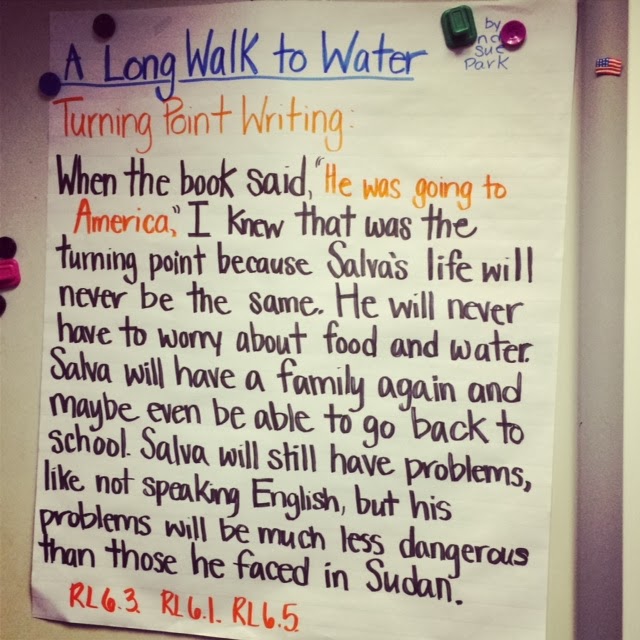 A Long Walk to Water
by
na
sue
Park
Turning Point Writing:
When the book said, "He was going to
America," I knew that was the
turning point because Salva's life will
never be the same. He will never
have to worry about food and water.
Salva will have a family again and
maybe even be able to go back to
school. Salva will still have problems,
like not speaking English, but his
problems will be much less dangerous
than those he faced in Sudan.
RL6.3. RL6.1. RL6.5